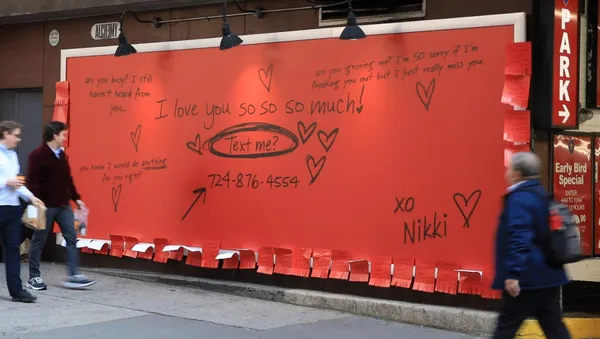 ALCHEMY
are you busy? I still
haven't heard from
you...
are you ignoring me? I'm so sorry if I'm
freaking you out but I just really miss you.
I love you so so so so much!
Text me?
you know I would do anything
for you right?
724-876-4554
xo
Nikki
PARK
Early Bird
Special